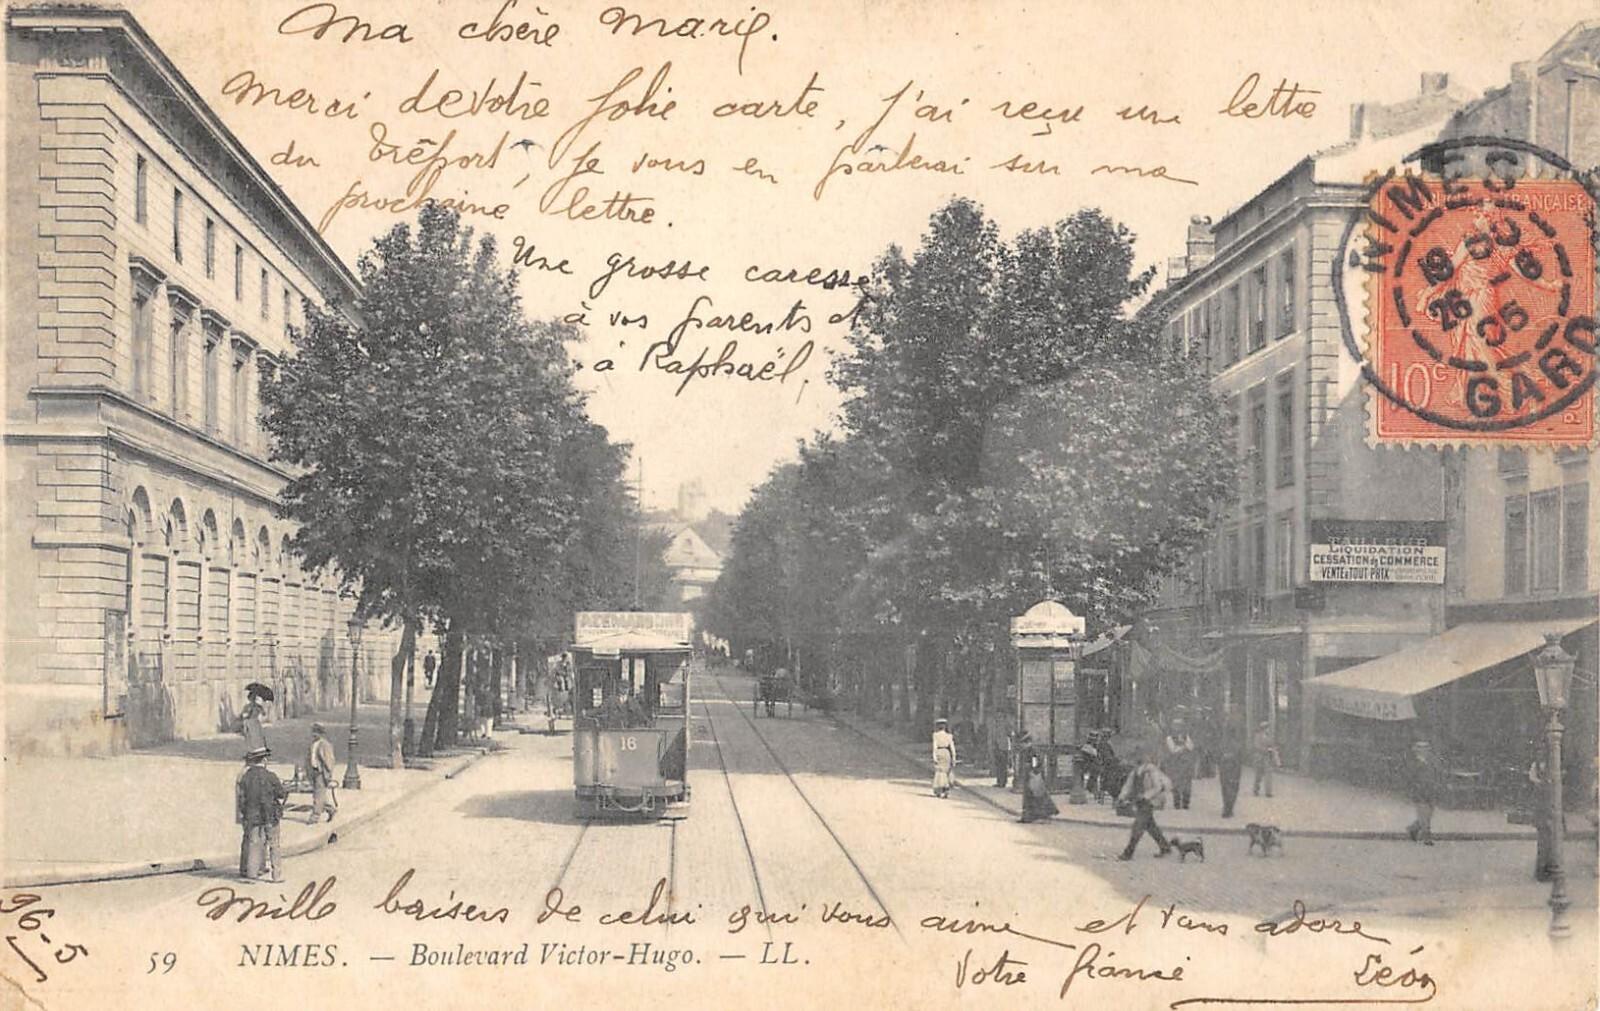 Ma chère Marie.
Merci de votre jolie carte, j'ai reçu une lettre
du Tréport, je vous en parlerai sur ma
prochaine lettre.
Une grosse caresse
à vos parents et
à Raphaël,
NIMES
18 30
26 - 6
05
GARD
FRANÇAISE
10 c
TAILLEUR
LIQUIDATION
CESSATION de COMMERCE
VENTE à TOUT PRIX
16
Mille baisers de celui qui vous aime et vous adore
Votre fiancé Léon
26-5
59 NIMES. — Boulevard Victor-Hugo. — LL.